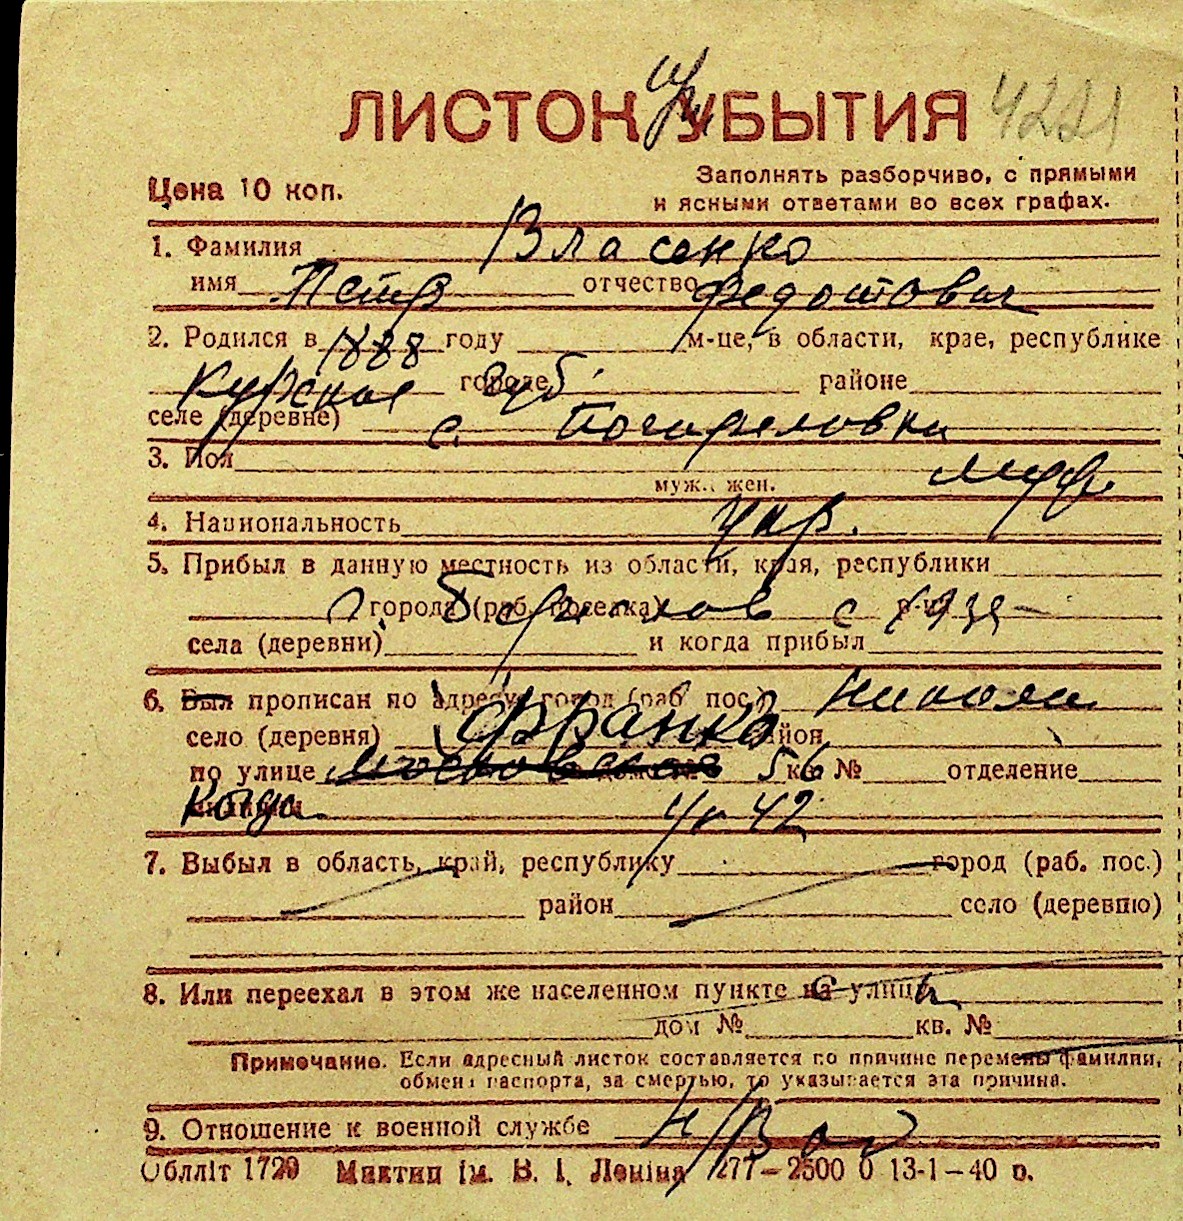 ЛИСТОК УБЫТИЯ
Цена 10 коп.
Заполнять разборчиво, с прямыми
и ясными ответами во всех графах.
1. Фамилия Власенко
имя Петр отчество Федотович
2. Родился в 1888 году м-це, в области, крае, республике
Курское городе губ. районе
селе (деревне) с. Погореловки
3. Пол
муж. жен.
4. Национальность укр.
5. Прибыл в данную местность из области, края, республики
города (раб. поселка) с р-на
села (деревни) и когда прибыл
6. Был прописан по адресу: город (раб. пос.)
село (деревня) Франко район
по улице Московская дом № 56 кв. № отделение
милиции
7. Выбыл в область, край, республику город (раб. пос.)
район село (деревню)
8. Или переехал в этом же населенном пункте на улицу
дом № кв. №
Примечание. Если адресный листок составляется по причине перемены фамилии,
обмена паспорта, за смертью, то указывается эта причина.
9. Отношение к военной службе
Обллiт 1729 Миктип iм. В. I. Ленiна 277—2500 0 13-1—40 р.